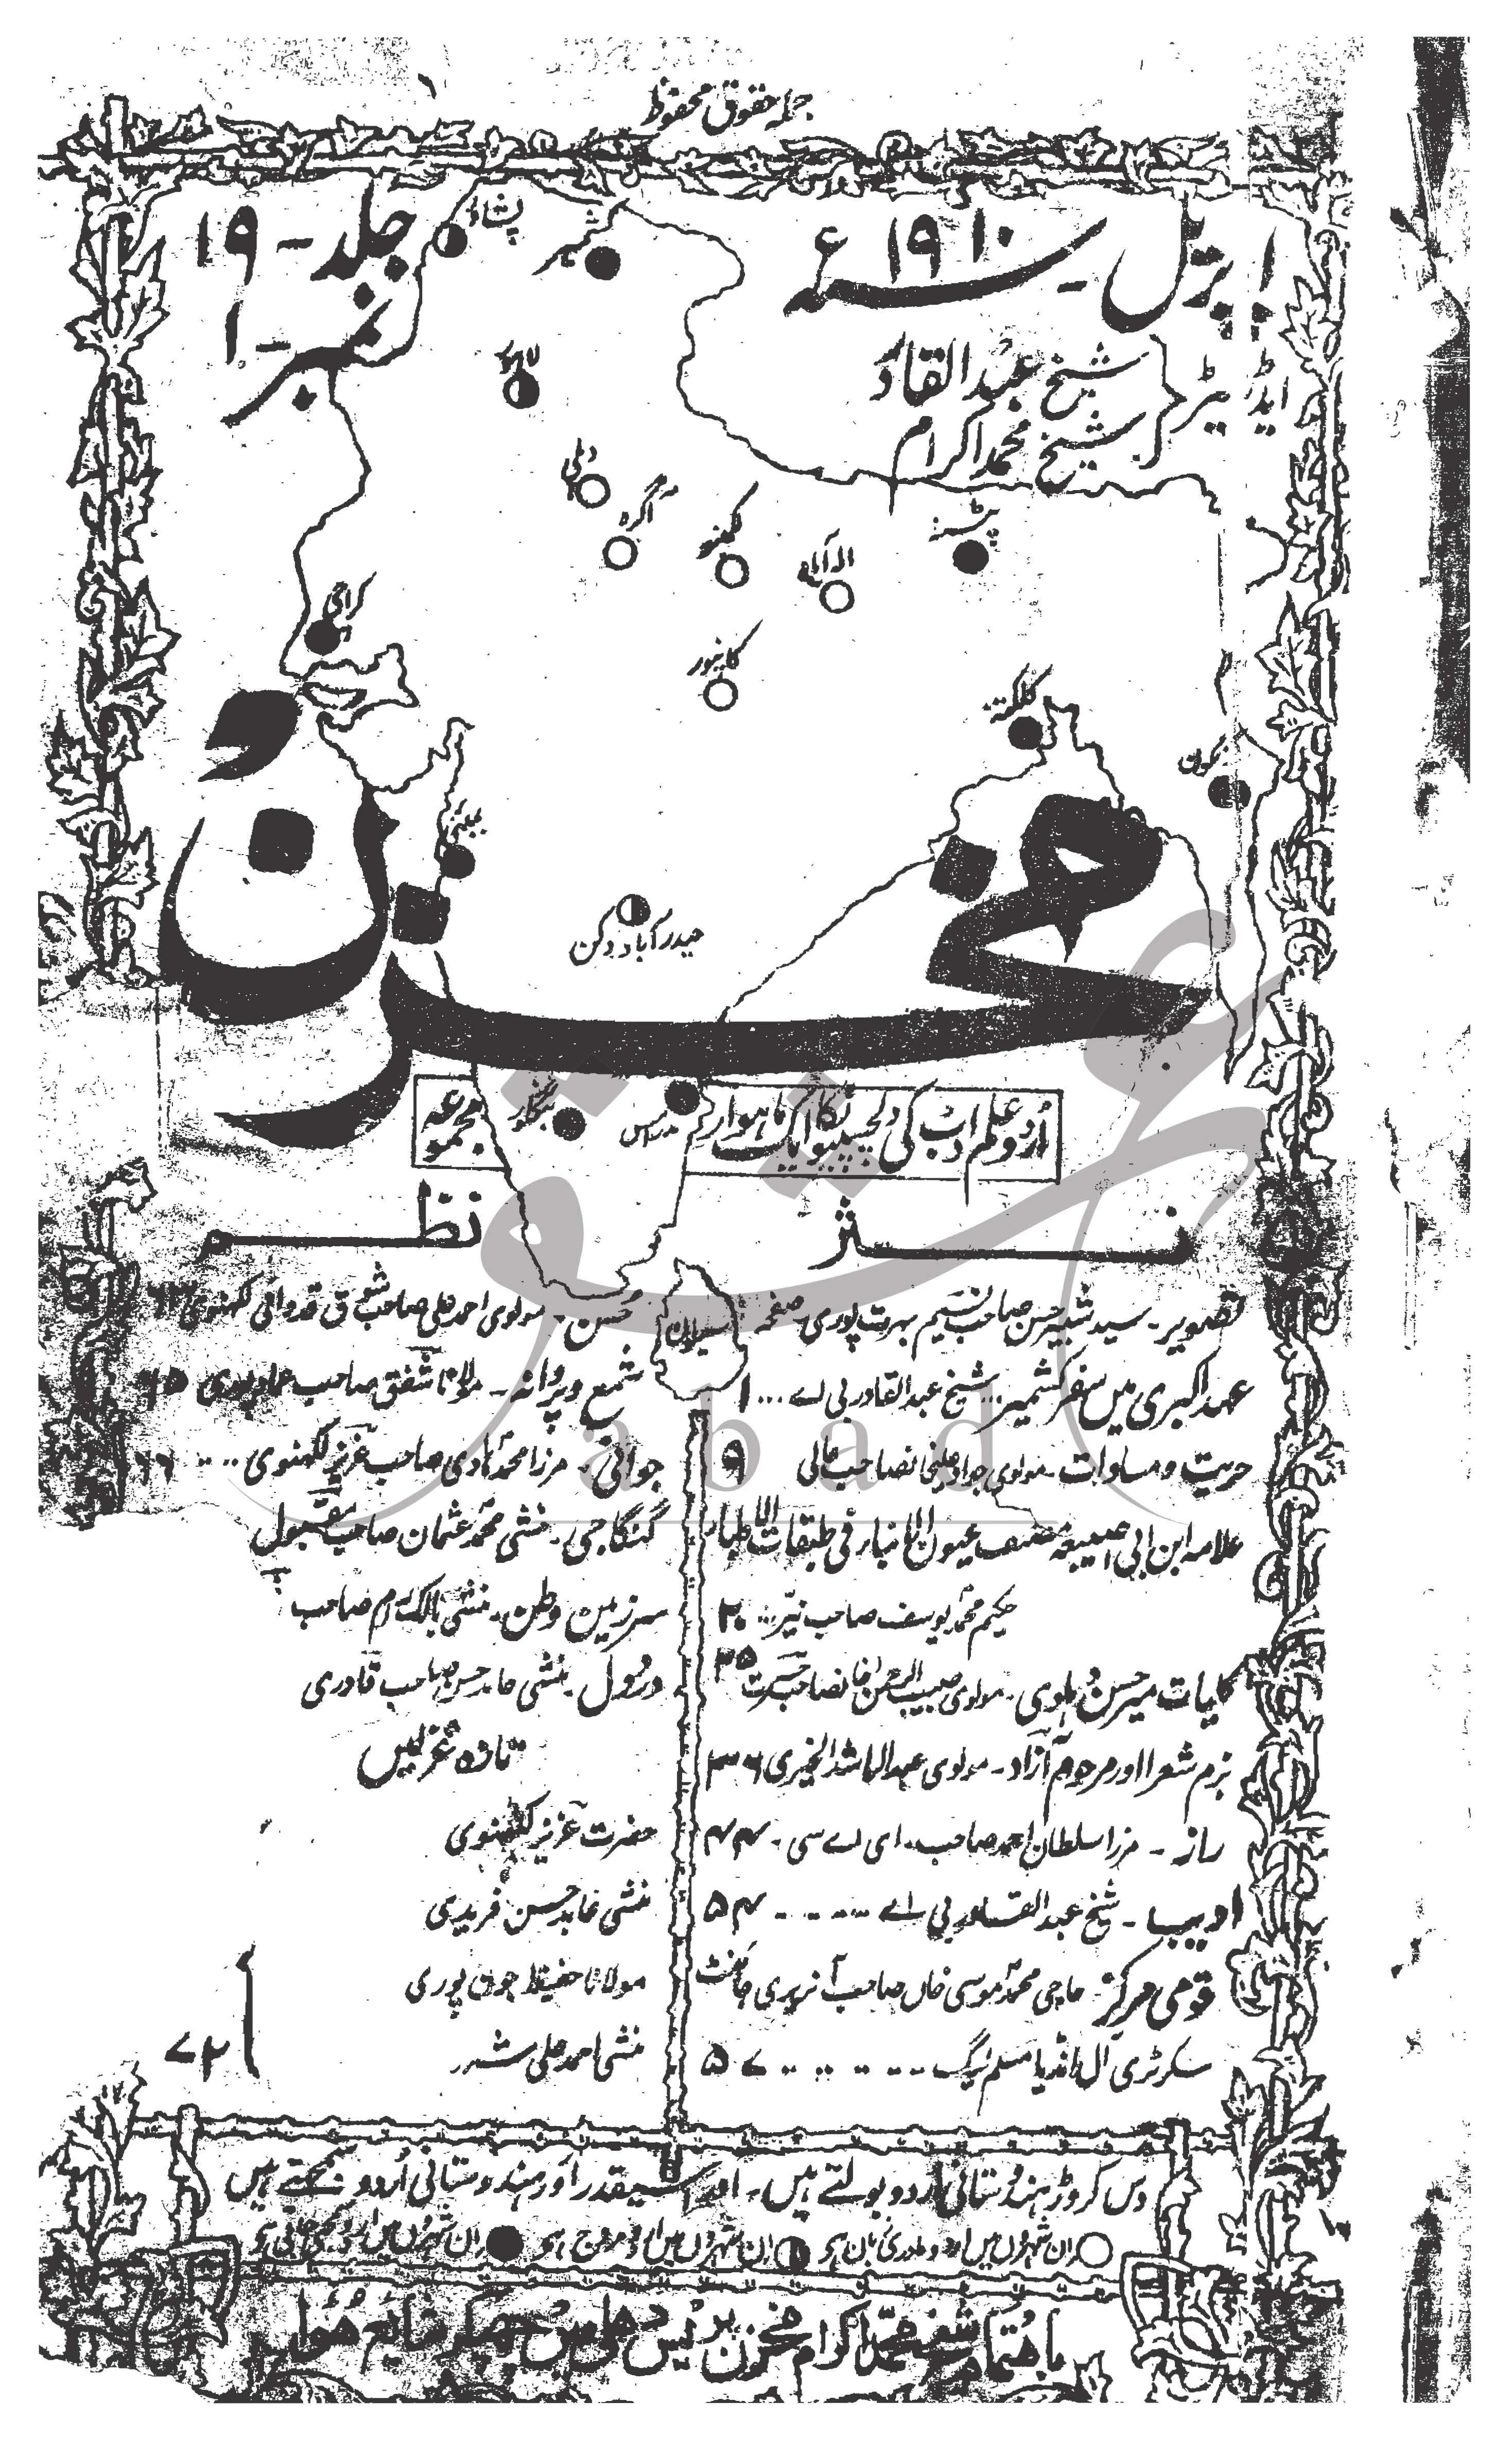 جملہ حقوق محفوظ
اپریل - سنہ ۱۹۱۰ء
جلد - ۱۹
نمبر - ۱
ایڈیٹر
شیخ عبدالقادر
شیخ محمد اکرام
پشاور
کشمیر
لاہور
دہلی
آگرہ
لکھنو
الہ آباد
پٹنہ
کراچی
کانپور
کلکتہ
رنگون
بمبئی
حیدرآباد دکن
مخزن
بنگلور
مدراس
اُردو علم ادب کی دلچسپیوں کا ایک ماہوار
مجموعہ
سیلون
نثر
تصویر - سید شبیر حسن صاحب نسیم بہرت پوری صفحہ
عہد اکبری میں سفر کشمیر .. شیخ عبدالقادر بی اے ... ۱
حریت و مساوات - مولوی جواد علیخانصاحب عالی ۹
علامہ ابن ابی اصیبعہ مصنف عیون الانباء فی طبقات الاطباء
حکیم محمد یوسف صاحب نیّر .. ۲۰
کلیات میر حسن دہلوی - مولوی حبیب الرحمن خانصاحب حسرت ۲۵
بزم شعرا اور مرحوم آزاد - مولوی عبدالراشد الخیری ۳۶
راز - مرزا سلطان احمد صاحب ای اے سی - ۴۴
ادیب - شیخ عبدالقادر بی اے ..... ۵۴
قومی مرکز - حاجی محمد موسی خاں صاحب آنریری جائنٹ
سکرٹری آل انڈیا مسلم لیگ ..... ۵۷
نظم
حُسن - مولوی احمد علی صاحب شوق قدوائی لکھنوی ۶۳
شمع و پروانہ - مولانا شفق صاحب عمادپوری ۶۵
جوانی - مرزا محمد ہادی صاحب عزیز لکھنوی .... ۶۶
گنگا جی - منشی محمد عثمان صاحب مقبول
سرزمین وطن - منشی بالک رام صاحب
دردِ دل - منشی حامد حسن صاحب قادری
تازہ غزلیں
حضرت عزیز لکھنوی
منشی عابد حسن فریدی
مولانا حفیظ جون پوری
منشی احمد علی
۷۲
دس کروڑ ہندوستانی اُردو بولتے ہیں - اور اسیقدر اور ہندوستانی اُردو سمجھتے ہیں
ان شہروں میں اردو مادری زبان ہی ان شہروں میں اردو مروج ہی ان شہروں میں اردو سمجھی جاتی ہی
باہتمام شیخ محمد اکرام مخزن پریس دہلی میں چھپکر شایع ہُوا
abad